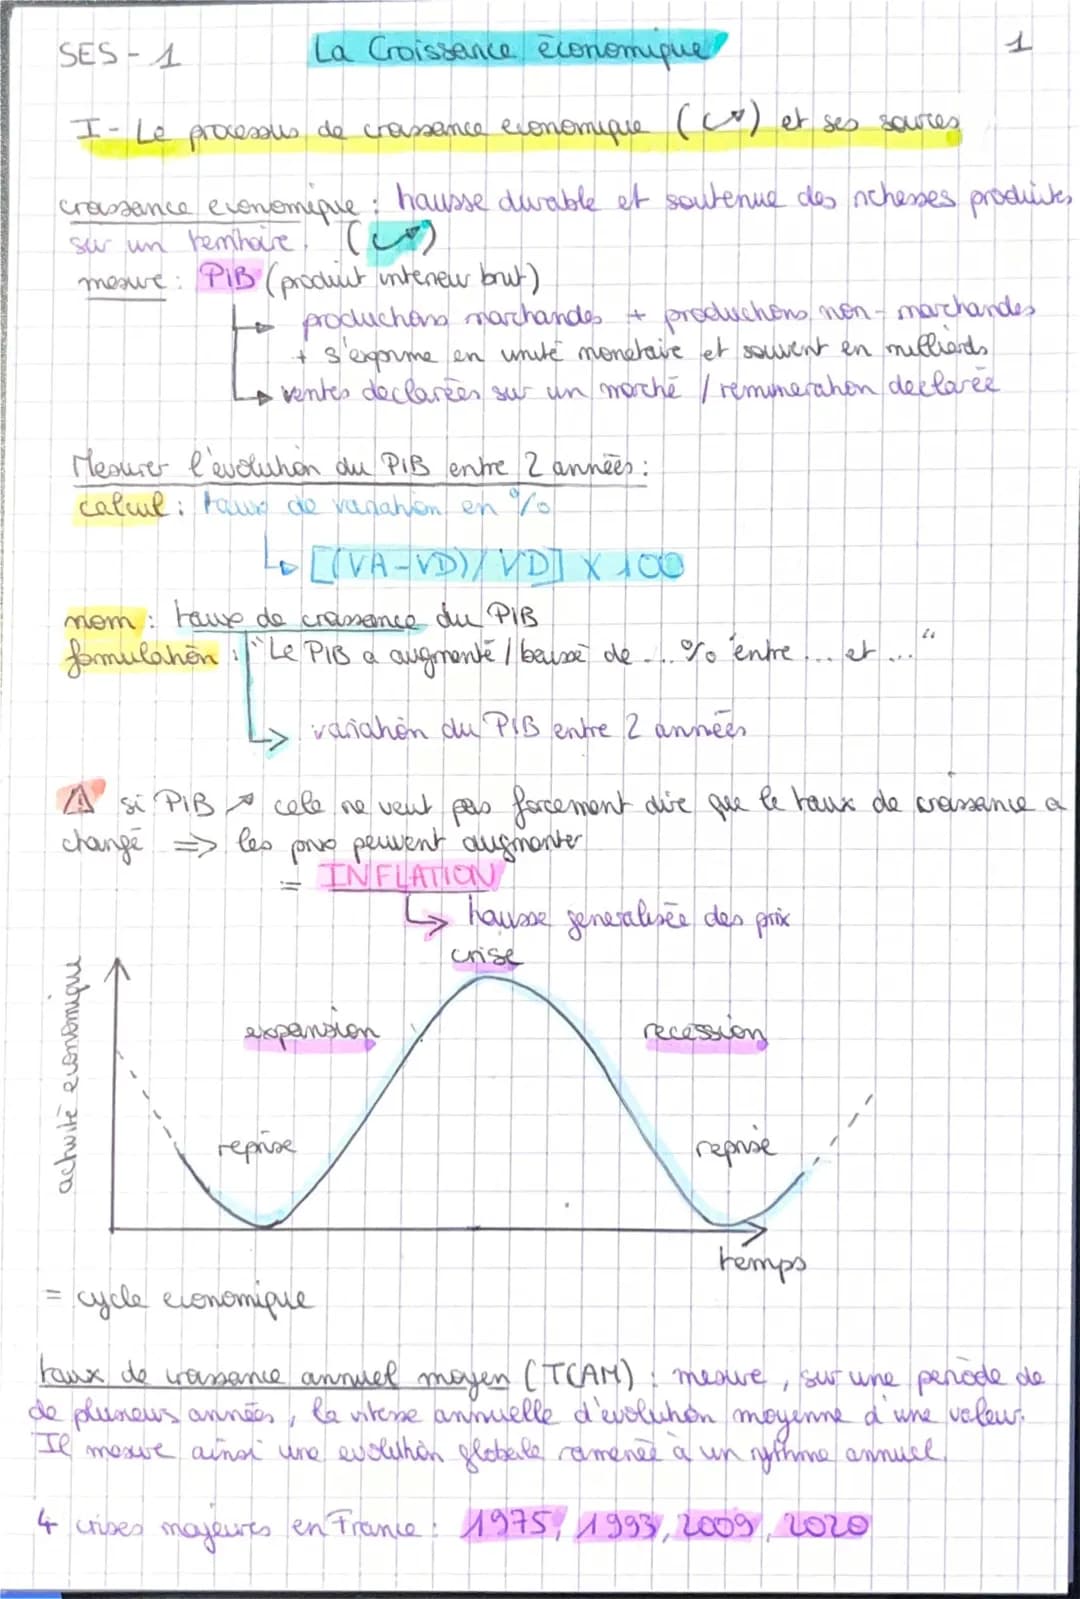 SES - 1
La Croissance économique
1
I - Le processus de croissance economique (c↗) et ses sources
croissance economique : hausse durable et soutenue des richesses produites
sur un territoire. (c↗)
mesure : PIB (produit interieur brut)
productions marchandes + productions non-marchandes
+ s'exprime en unité monetaire et souvent en milliards
ventes declarées sur un marché / remuneration declarée
Mesurer l'evolution du PIB entre 2 années :
calcul : taux de variation en %
[(VA-VD)/VD] x 100
nom : taux de croissance du PIB
formulation : "Le PIB a augmenté / baissé de ... % entre ... et ..."
variation du PIB entre 2 années
⚠ si PIB ↗ cela ne veut pas forcement dire que le taux de croissance a
changé => les prix peuvent augmenter
= INFLATION
hausse generalisée des prix
crise
activité economique
expansion
recession
reprise
reprise
temps
= cycle economique
taux de croissance annuel moyen (TCAM) : mesure, sur une periode de
de plusieurs années, la vitesse annuelle d'evolution moyenne d'une valeur.
Il mesure ainsi une evolution globale ramenée à un rythme annuel.
4 crises majeures en France : 1975, 1993, 2009, 2020